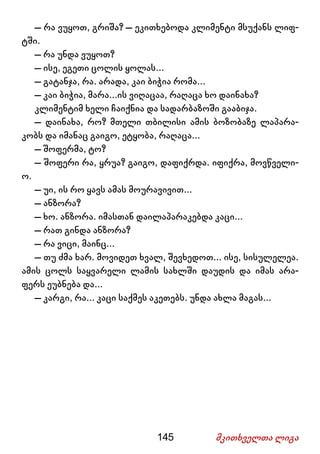 — რა ვუყოთ, გრიშა? — ეკითხებოდა კლიმენტი მსუქანს ლიფ-
ტში.
— რა უნდა ვუყოთ?
— ისე, ეგეთი ცოლის ყოლას...
— გატანჯა, რა. არადა, კაი ბიჭია რომა...
— კაი ბიჭია, მარა...ის ვიღაცაა, რაღაცა ხო დაინახა?
კლიმენტიმ ხელი ჩაიქნია და სადარბაზოში გააბიჯა.
— დაინახა, რო? მთელი თბილისი ამის ბოზობაზე ლაპარა-
კობს და იმანაც გაიგო, ეტყობა, რაღაცა...
— შოფერმა, ტო?
— შოფერი რა, ყრუა? გაიგო, დაფიქრდა. იფიქრა, მოვწველი-
ო.
— უი, ის რო ყავს ამას მოურავივით...
— ანზორა?
— ხო. ანზორა. იმასთან დაილაპარაკებდა კაცი...
— რათ გინდა ანზორა?
— რა ვიცი, მაინც...
— თუ ძმა ხარ. მოვიდეთ ხვალ, შევხედოთ... ისე, სისულელეა.
ამის ცოლს საყვარელი ლამის სახლში დაუდის და იმას არა-
ფერს ეუბნება და...
— კარგი, რა... კაცი საქმეს აკეთებს. უნდა ახლა მაგას...
145 მკითხველთა ლიგა